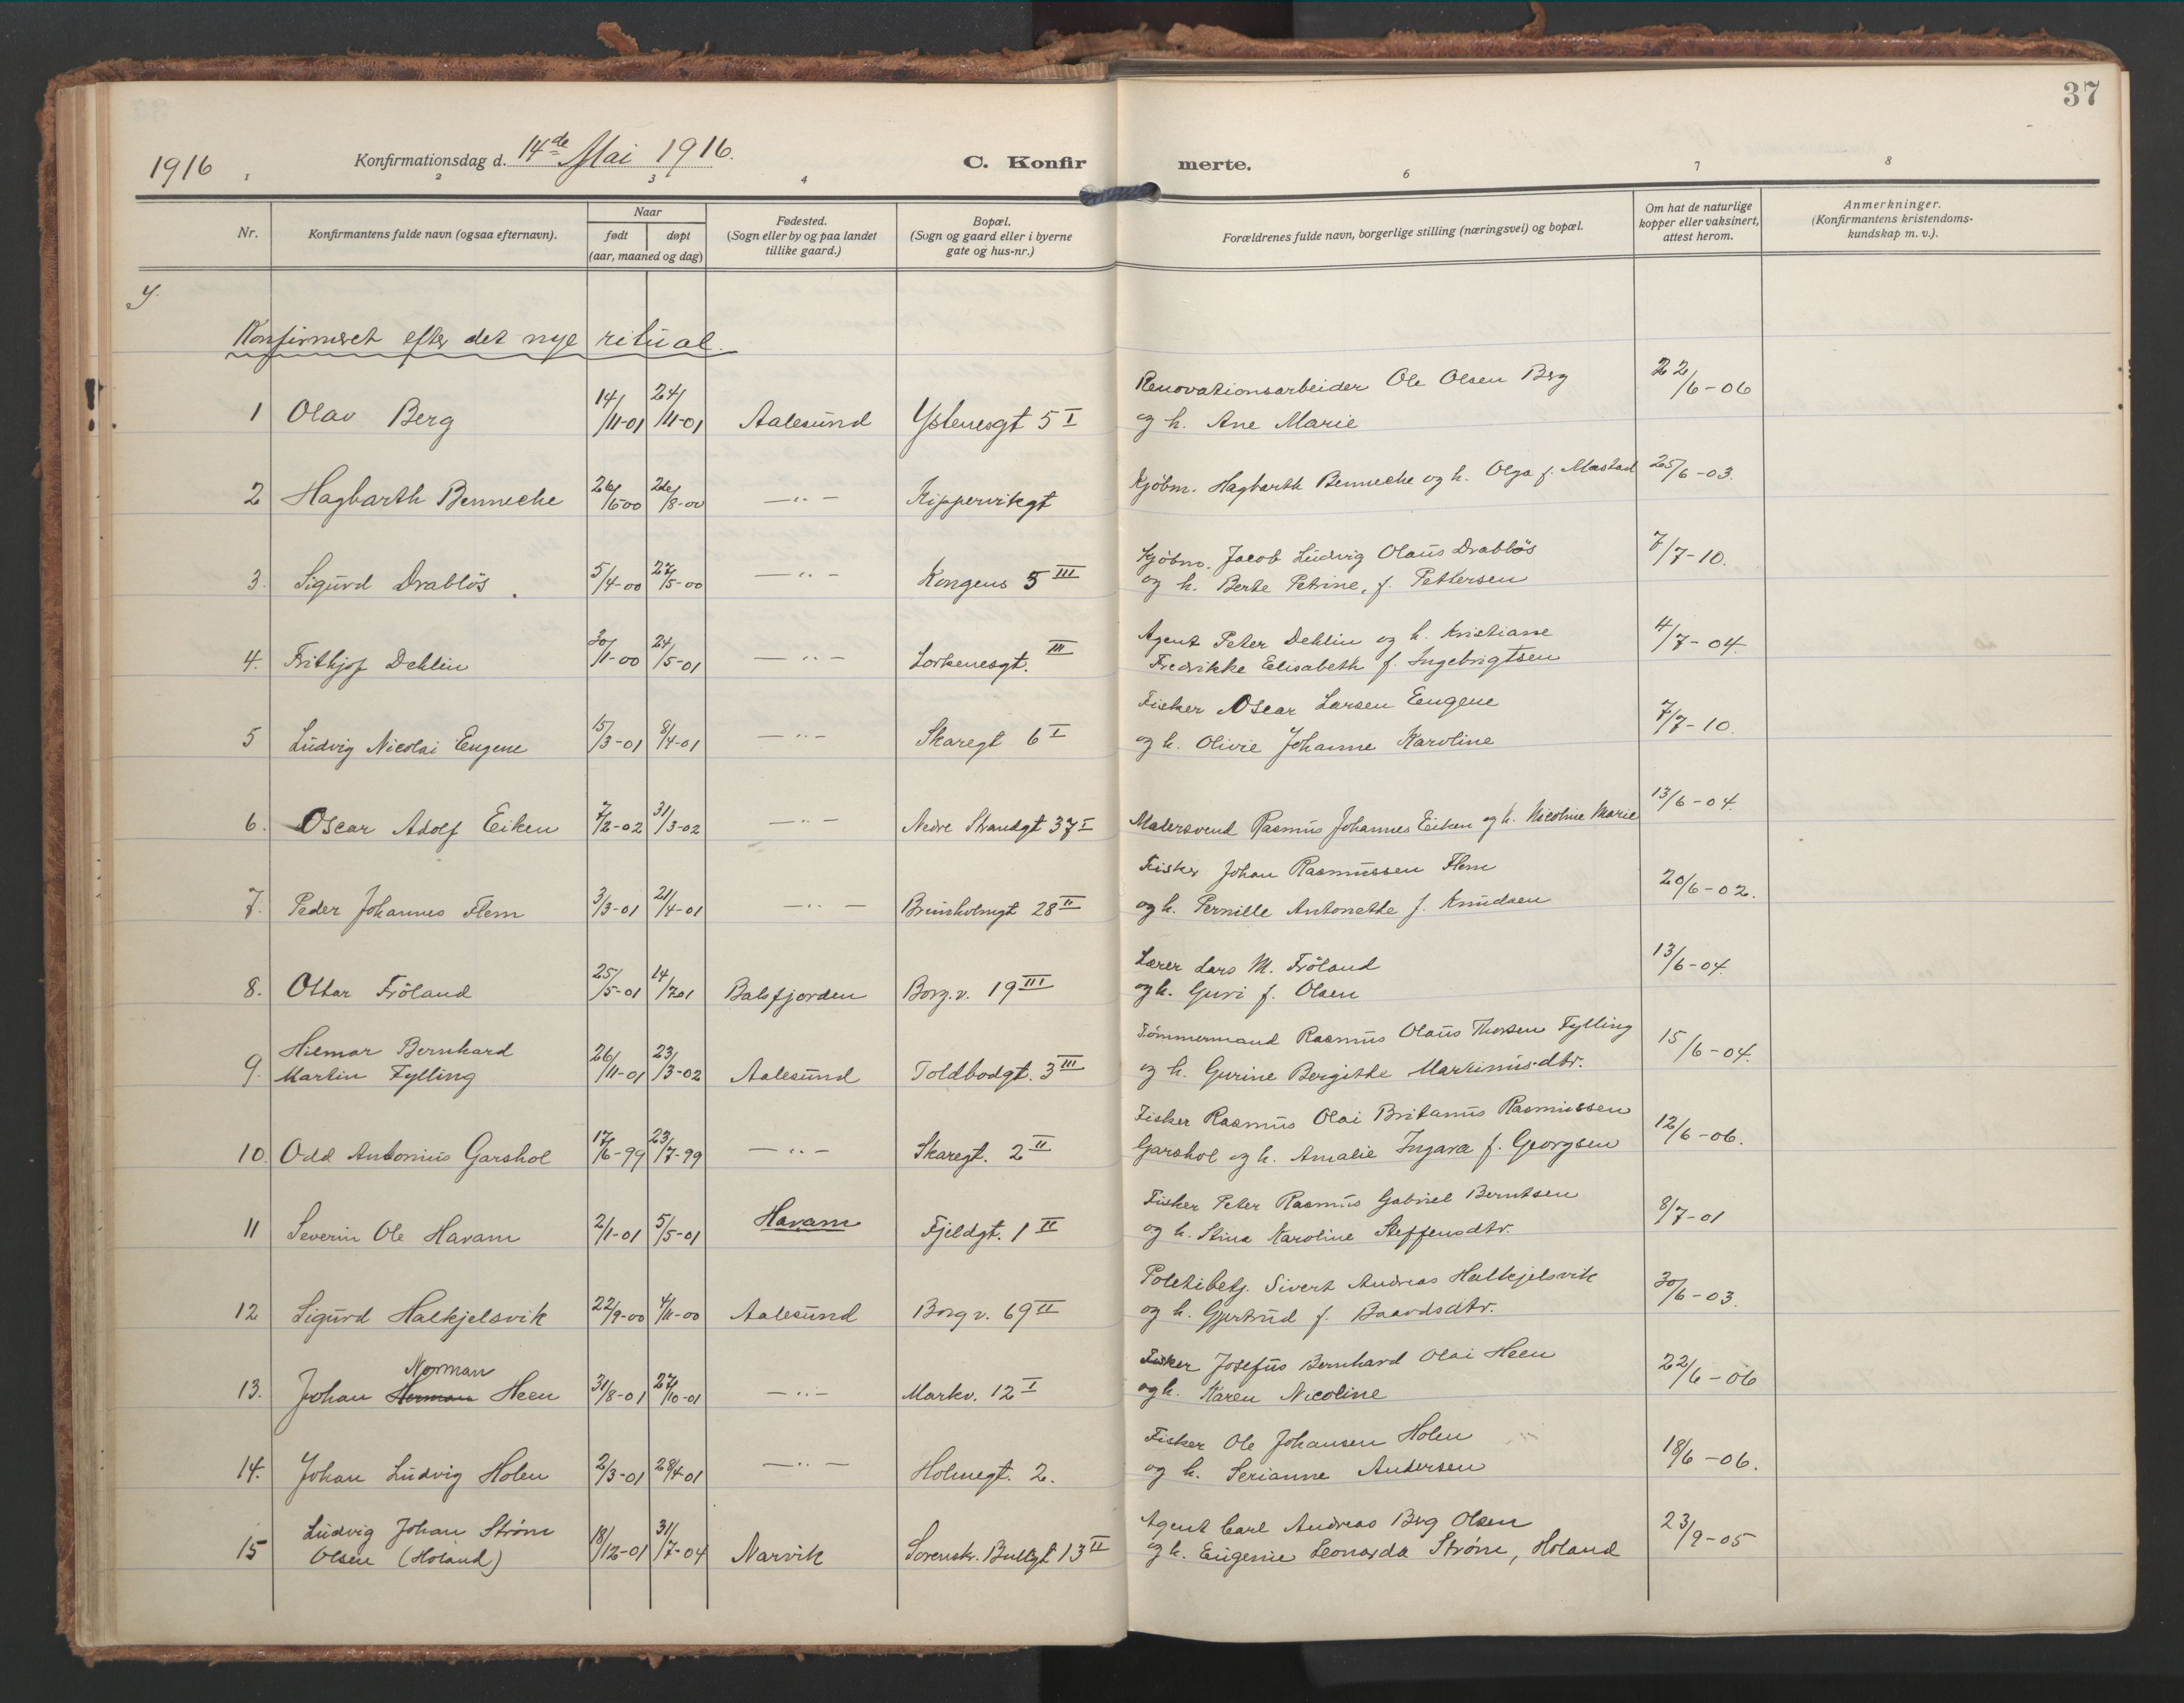 37
1916 Konfirmationsdag d. 14de Mai 1916. C. Konfirmerte.
1 2 3 4 6 7 8
Nr. Konfirmantens fulde navn (ogsaa efternavn). Naar født døpt (aar, maaned og dag) Fødested. (Sogn eller by og paa landet tillike gaard.) Bopæl. (Sogn og gaard eller i byerne gate og hus-nr.) Forældrenes fulde navn, borgerlige stilling (næringsvei) og bopæl. Om hat de naturlige kopper eller vaksinert, attest herom. Anmerkninger. (Konfirmantens kristendoms-kundskap m. v.).
Konfirmert efter det nye ritual.
1 Olav Berg 14/11-01 24/11-01 Aalesund Ystenesgt 5 I Renovationsarbeider Ole Olsen Berg 22/6-06
og h. Ane Marie
2 Hagbarth Benneche 26/6 00 26/8-00 —"— Kippervikgt Kjøbm. Hagbarth Benneche og h. Olga f. Mastad 25/6-03.
3. Sigurd Drabløs 5/4-00 27/5-00 —"— Kongens 5 III Kjøbm. Jacob Ludvig Olaus Drabløs 7/7-10.
og h. Berte Petrine, f. Pettersen
4. Frithjof Dehlin 30/1-00 24/5-01 —"— Lorkenesgt. III Agent Peter Dehlin og h. Kristiane 4/7-04.
Fredrikke Elisabeth f. Ingebrigtsen
5 Ludvig Nicolai Eugene 15/3-01 8/4-01 —"— Skaregt 6 I Fisker Oscar Larsen Eugene 7/7-10.
og h. Olivie Johanne Karoline
6. Oscar Adolf Eiken 7/2-02 31/3-02 —"— Nedre Strandgt 37 I Malersvend Rasmus Johannes Eiken og h. Nicoline Marie 13/6-04.
7. Peder Johannes Flem 3/3-01 21/4-01 —"— Brunholmgt 28 II Fisker Johan Rasmussen Flem 20/6-02.
og h. Pernille Antonethe f. Knudsen
8. Ottar Frøland 25/5-01 14/7 01 Balsfjorden Borg.v. 19 III Lærer Lars M. Frøland 13/6-04.
og h. Guri f. Olsen
9. Hilmar Bernhard 26/11-01 23/3-02 Aalesund Toldbodgt. 3 III Tømmermand Rasmus Olaus Thorsen Fylling 15/6-04.
Martin Fylling og h. Gurine Bergithe Martinusdtr.
10. Odd Antonius Garshol 17/6-99 23/7-99 —"— Skaregt. 2 II Fisker Rasmus Olai Britanus Rasmussen 12/6-06.
Garshol og h. Amalie Ingara f. Georgsen
11 Severin Ole Haram 2/1-01 5/5-01 Haram Fjeldgt. 1 II Fisker Peter Rasmus Gabriel Berntsen 8/7-01
og h. Stina Karoline Steffensdtr.
12 Sigurd Halkjelsvik 22/9-00 4/11-00 Aalesund Borg v. 69 II Politibetj. Sivert Andreas Halkjelsvik 30/6-03.
og h. Gjertrud f. Baardsdtr.
Norman
13. Johan Herman Heen 31/8-01 27/10-01 —"— Markv. 12 I Fisker Josefus Bernhard Olai Heen 22/6-06
og h. Karen Nicoline
14. Johan Ludvig Holen 2/3-01 28/4-01 —"— Holmegt. 2. Fisker Ole Johansen Holen 18/6-06.
og h. Serianne Andersen
15 Ludvig Johan Strøm 18/12-01 31/7-04 Narvik Sorenskr. Bullgt 13 II Agent Carl Andreas Berg Olsen 23/9-05
Olsen (Høland) og h. Eugenie Leonarda Strøm, Høland